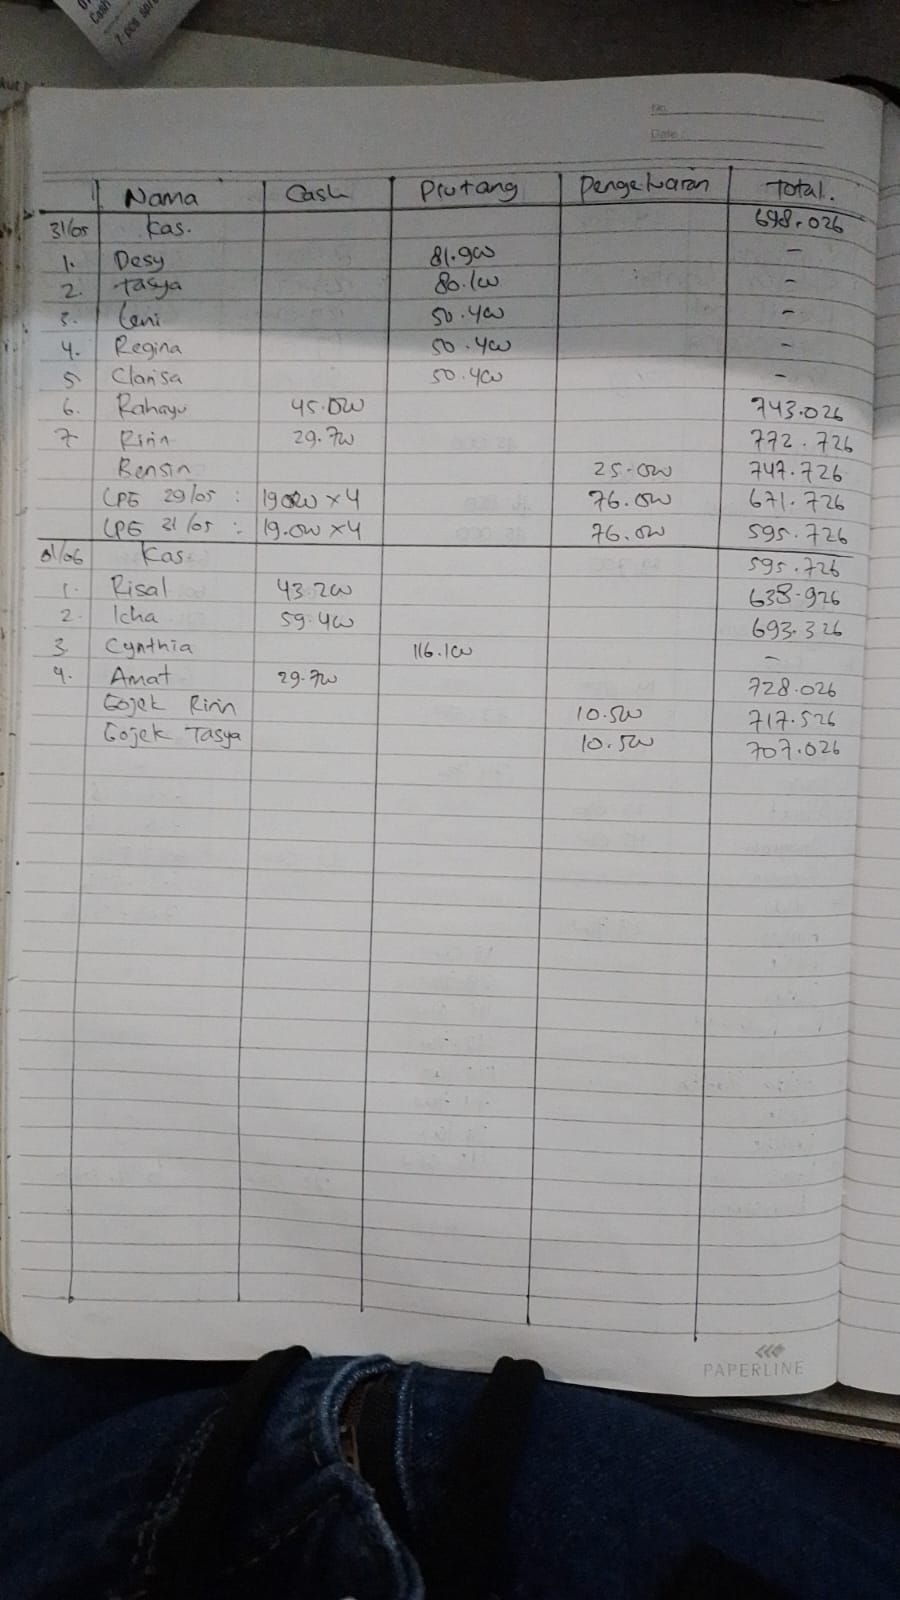 No.
Date :
Nama Cash Piutang Pengeluaran Total.
31/05 Kas. 698.026
1. Desy 81.900 -
2. Tasya 80.100 -
3. Leni 50.400 -
4. Regina 50.400 -
5 Clarisa 50.400 -
6. Rahayu 45.000 743.026
7 Ririn 29.700 772.726
Bensin 25.000 747.726
LPG 29/05 : 19000 x 4 76.000 671.726
LPG 31/05 : 19.000 x 4 76.000 595.726
01/06 Kas. 595.726
1. Risal 43.200 638.926
2. Icha 59.400 693.326
3. Cynthia 116.100 -
4. Amat 29.700 728.026
Gojek Ririn 10.500 717.526
Gojek Tasya 10.500 707.026
PAPERLINE